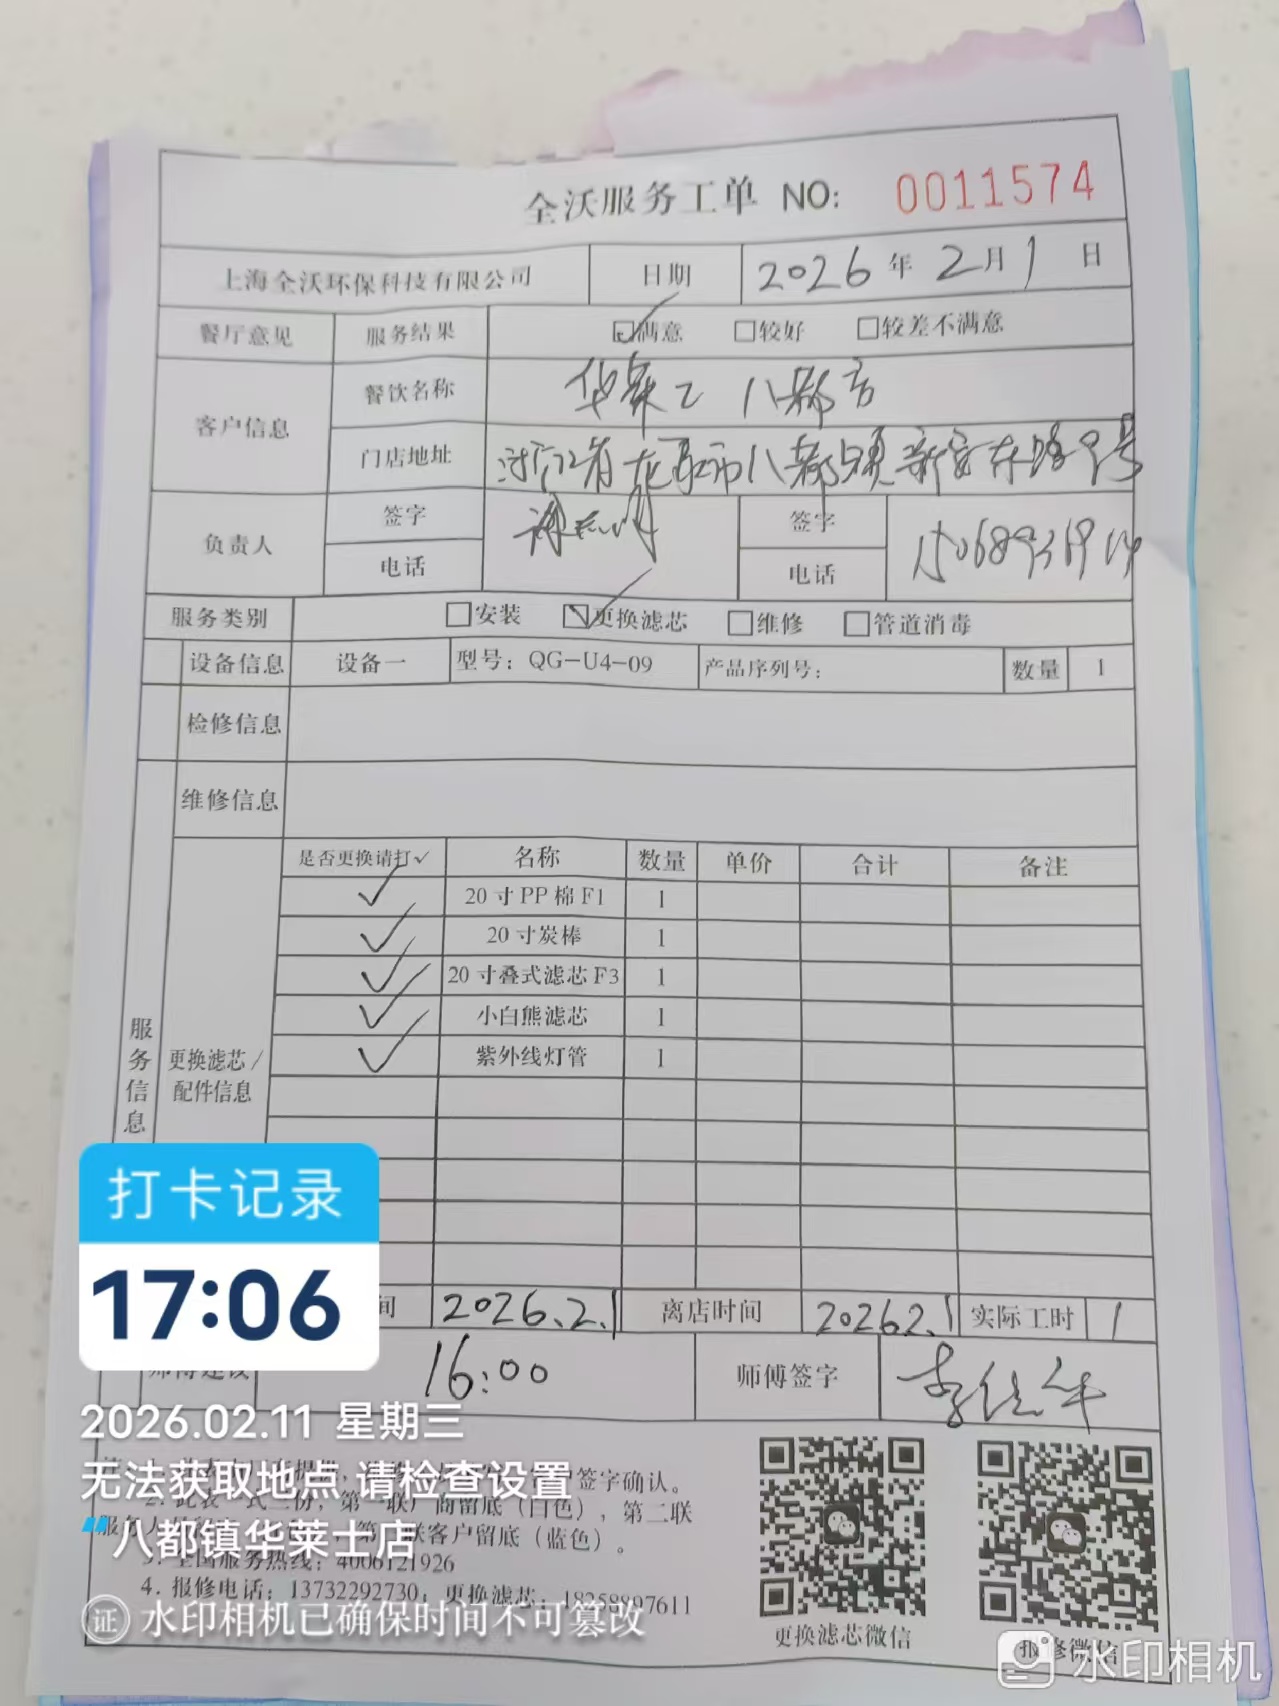 全沃服务工单 NO: 0011574
上海全沃环保科技有限公司 日期 2026年2月1日
餐厅意见 服务结果 ☑满意 □较好 □较差不满意
客户信息 餐饮名称 华莱士 八都店
门店地址 浙江省龙泉市八都镇新宫东路9号
负责人 签字 签字
电话 电话
服务类别 □安装 ☑更换滤芯 □维修 □管道消毒
设备信息 设备一 型号：QG-U4-09 产品序列号： 数量 1
检修信息
维修信息
服务信息
更换滤芯/配件信息
是否更换请打✓ 名称 数量 单价 合计 备注
✓ 20寸PP棉F1 1
✓ 20寸炭棒 1
✓ 20寸叠式滤芯F3 1
✓ 小白熊滤芯 1
✓ 紫外线灯管 1
间 2026.2.1 离店时间 2026.2.1 实际工时 1
师傅建议 16:00 师傅签字
签字确认。
2. 此表一式三份，第一联厂商留底（白色），第二联
联客户留底（蓝色）。
3. 全国服务热线：4006121926
4. 报修电话：13732292730；更换滤芯：18258897611
更换滤芯微信 报修微信
打卡记录
17:06
2026.02.11 星期三
无法获取地点,请检查设置
八都镇华莱士店
证 水印相机已确保时间不可篡改
水印相机